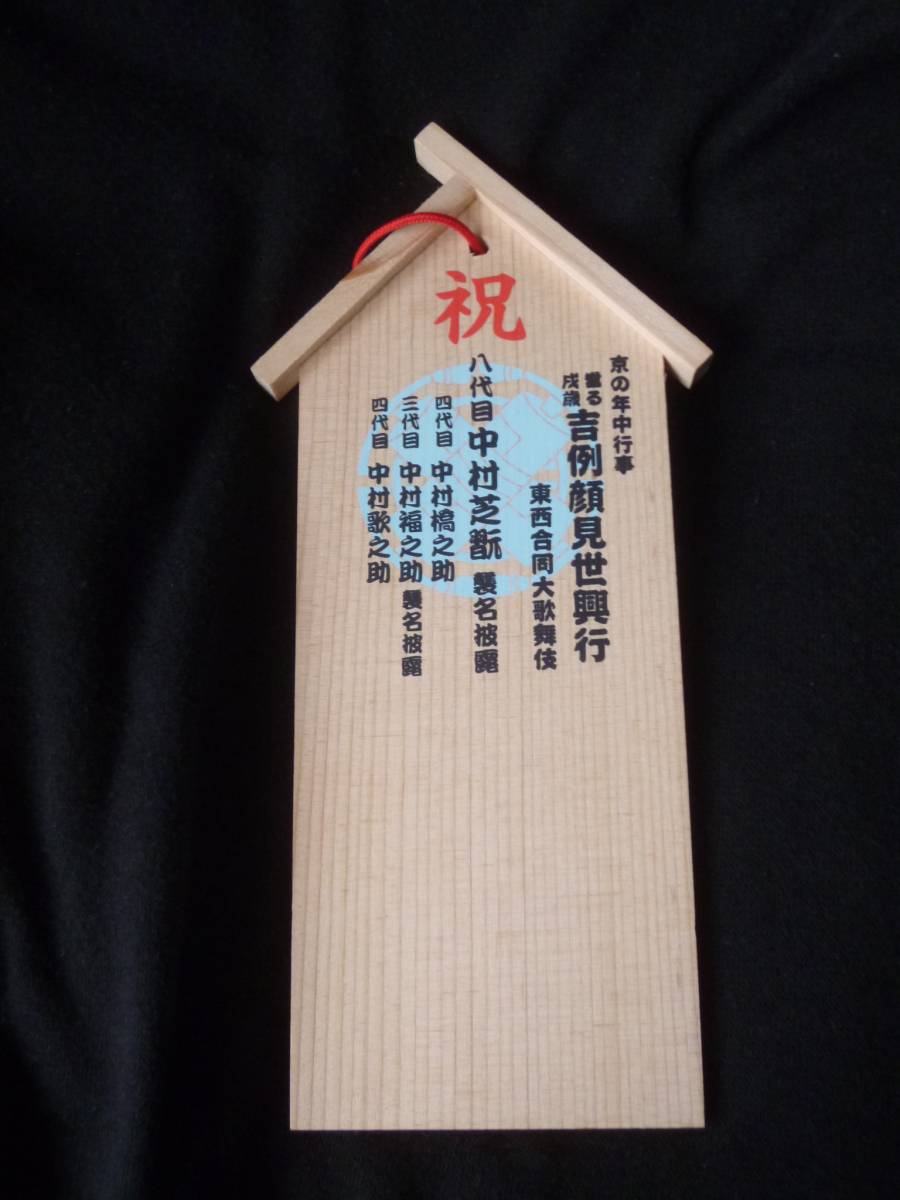 祝
京の年中行事
當る戌歳 吉例顔見世興行
東西合同大歌舞伎
八代目 中村芝翫 襲名披露
四代目 中村橋之助
三代目 中村福之助 襲名披露
四代目 中村歌之助